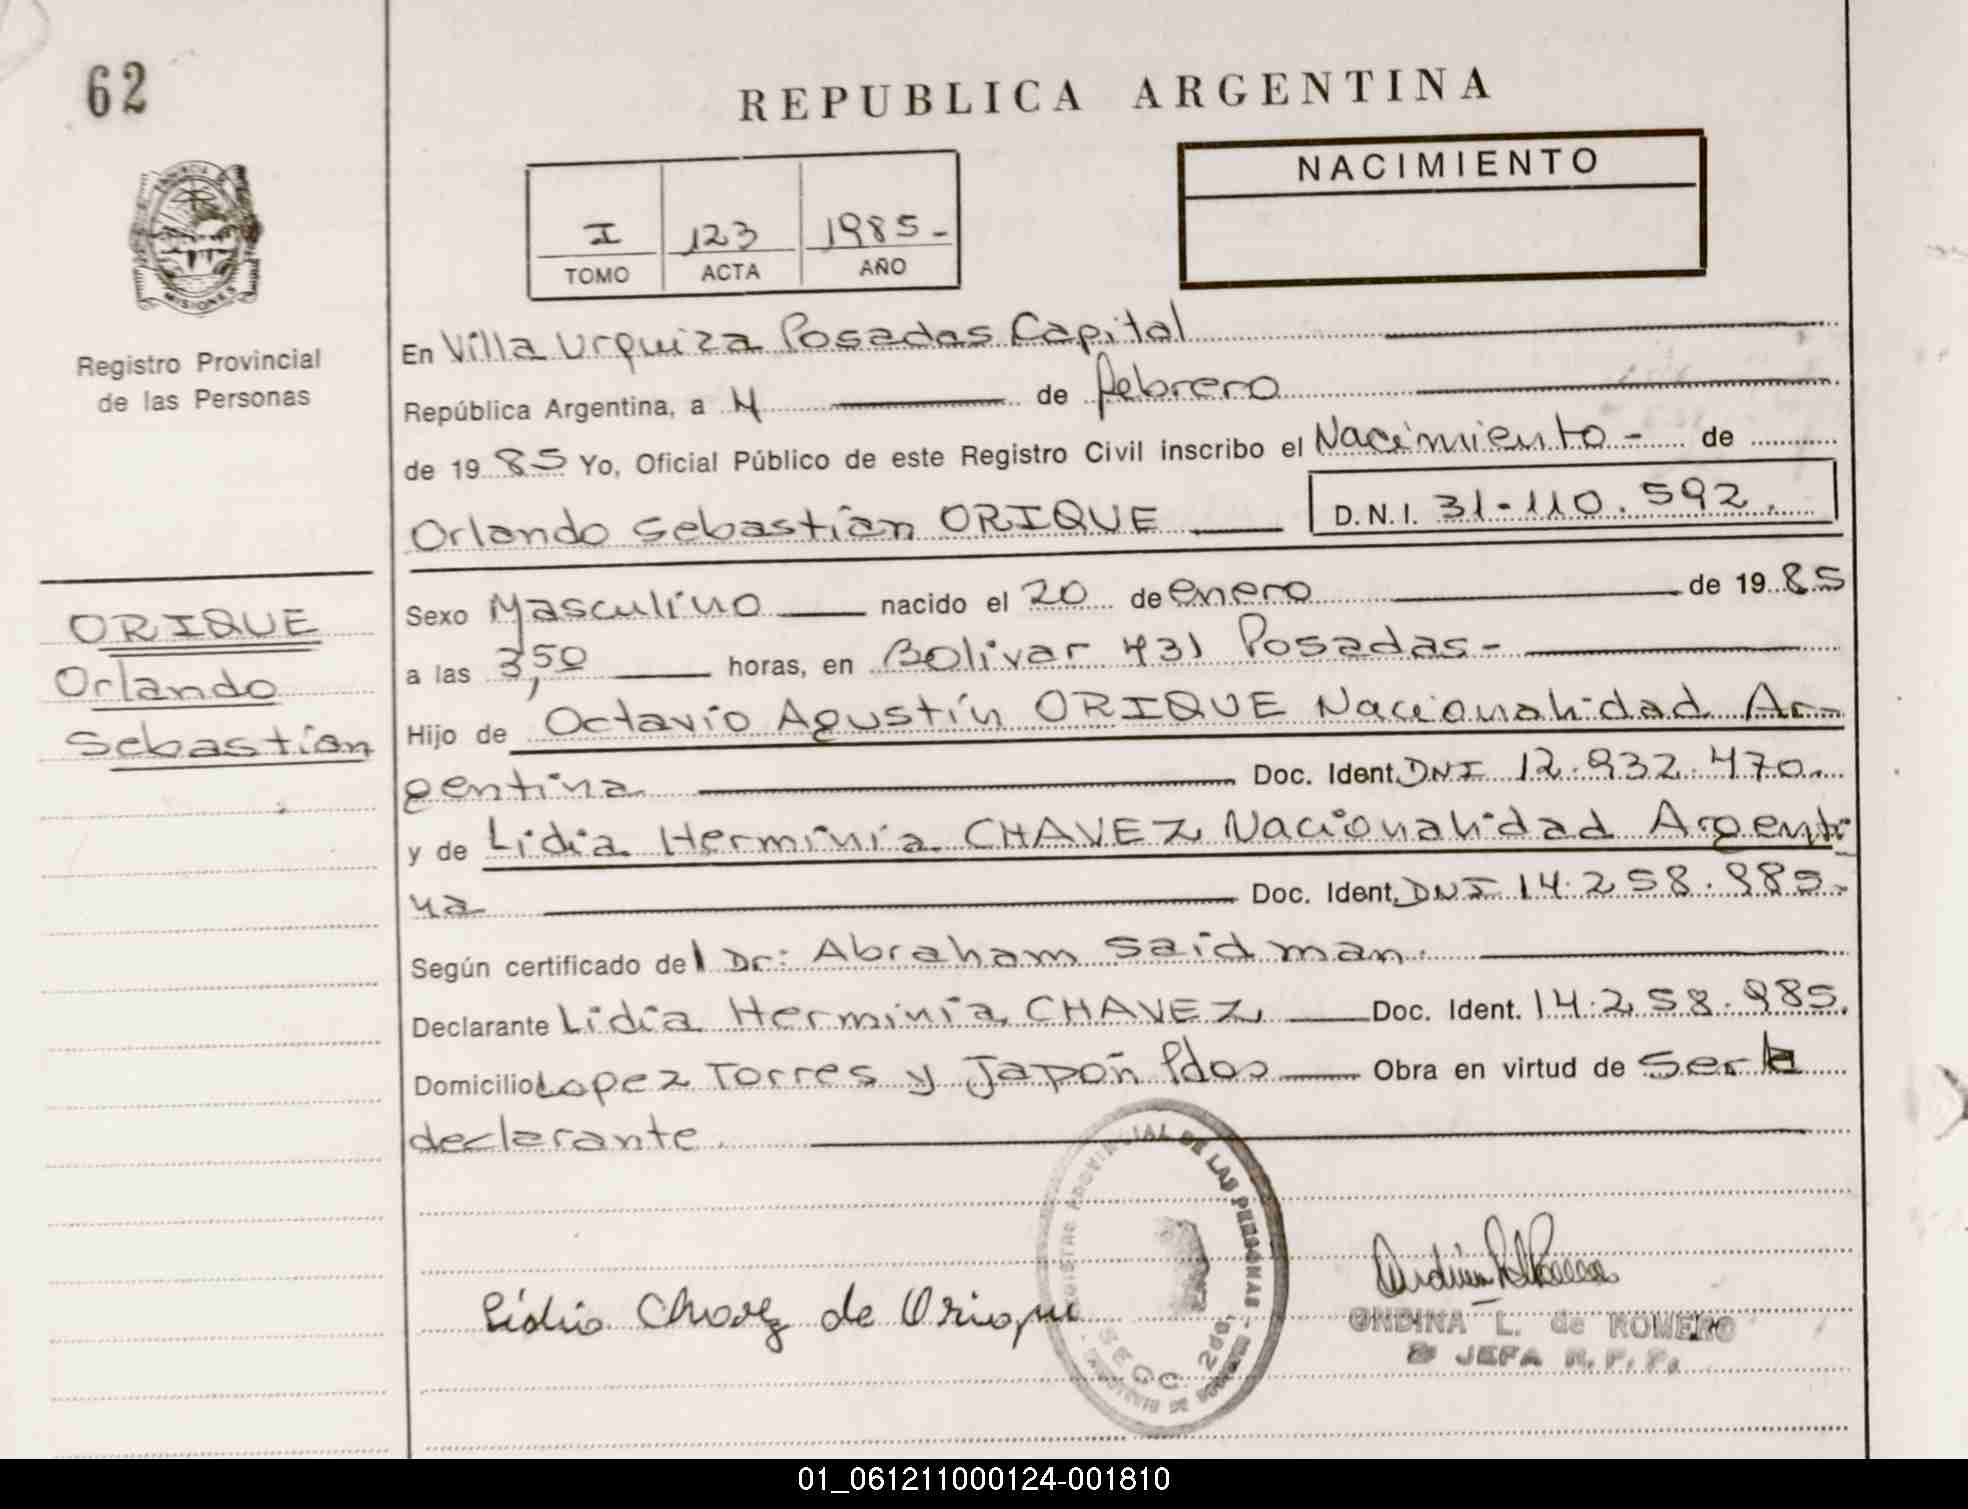 62
REPUBLICA ARGENTINA
NACIMIENTO
I 123 1985-
TOMO ACTA AÑO
MISIONES
Registro Provincial
de las Personas
En Villa Urquiza Posadas Capital
República Argentina, a 4 de febrero
de 1985 Yo, Oficial Público de este Registro Civil inscribo el Nacimiento - de
Orlando Sebastián ORIQUE D.N.I. 31-110.592.
ORIQUE
Orlando
Sebastián
Sexo Masculino nacido el 20 de enero de 1985
a las 3,50 horas, en Bolivar 431 Posadas-
Hijo de Octavio Agustín ORIQUE Nacionalidad Ar-
gentina Doc. Ident. DNI 12.932.470.
y de Lidia Herminia CHAVEZ Nacionalidad Argenti
na Doc. Ident. DNI 14.258.985.
Según certificado del Dr: Abraham Saidman.
Declarante Lidia Herminia CHAVEZ Doc. Ident. 14.258.985.
Domicilio Lopez Torres y Japón Pdas Obra en virtud de ser la
declarante
REGISTRO PROVINCIAL DE LAS PERSONAS
SECC. 2da.
Lidia Chavez de Orique
ONDINA L. de ROMERO
JEFA R. P. P.
01_061211000124-001810